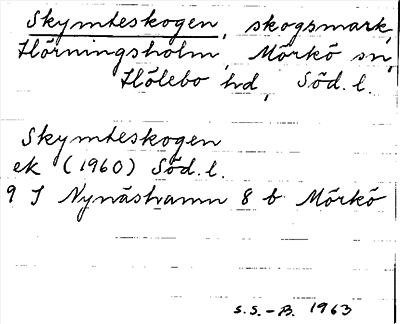 Skymteskogen, skogsmark,
Hörningsholm, Mörkö sn,
Hölebo hd, Söd. l.
Skymteskogen
ek (1960) Söd. l.
9 I Nynäshamn 8 b Mörkö
S.S.-B. 1963